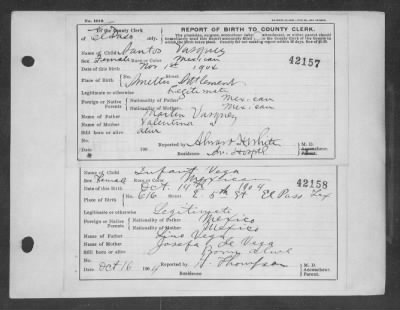 No. 1012
REPORT OF BIRTH TO COUNTY CLERK.
To the County Clerk
El Paso
Name of Child Santos Vasquez
42157
Sex Female Race or Color Mexican
Date of this birth Nov 1st 1904
Place of Birth Smelter Settlement Street
Legitimate or otherwise Legitimate
Foreign or Native Parents
Nationality of Father Mexican
Nationality of Mother Mexican
Name of Father Martin Vasquez
Name of Mother Valentina
Still born or alive
Date 190
Reported by
M. D.
Accoucheur.
Residence
Parent.
Name of Child Infant Vega
42158
Sex Female Race or Color Mexican
Date of this birth Oct. 14th 1904
Place of Birth No. 616 E. 5th St El Paso Tex
Legitimate or otherwise Legitimate
Foreign or Native Parents
Nationality of Father Mexico
Nationality of Mother Mexico
Name of Father Vega
Name of Mother Josefa de Vega
Still born or alive Born alive
Date Oct 16 1904
Reported by H. Thompson
M. D.
Accoucheur.
Residence
Parent.